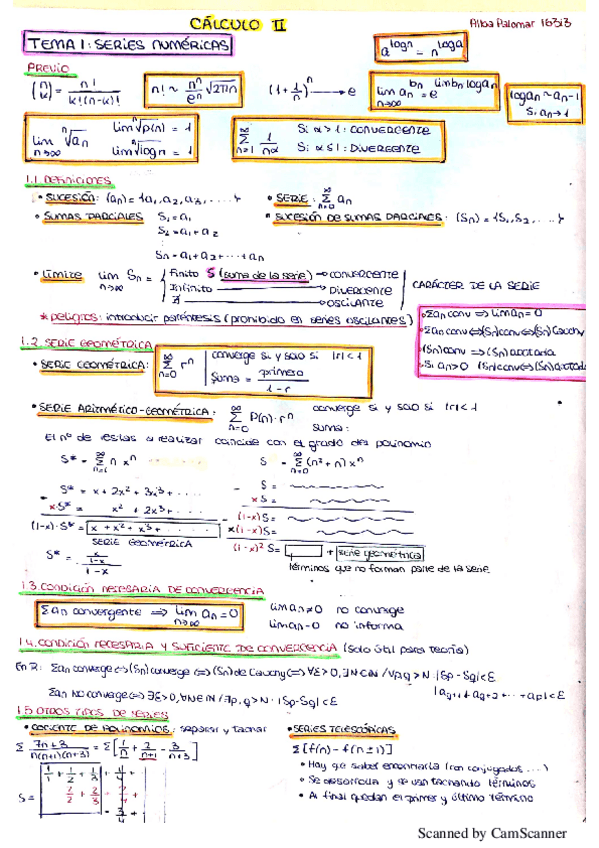 CÁLCULO II
Alba Palomar 16313
TEMA 1: SERIES NUMÉRICAS
a^{log n} = n^{log a}
PREVIO
(n k) = n! / k!(n-k)!
n! ~ n^n/e^n √(2πn)
(1 + 1/n)^n → e
lim_{n→∞} a_n^{b_n} = e^{lim b_n log a_n}
log a_n ~ a_n - 1
Si a_n → 1
lim_{n→∞} ⁿ√a_n
lim ⁿ√p(n) = 1
lim ⁿ√log n = 1
∞ Σ n=1 1/n^α
Si α > 1: CONVERGENTE
Si α ≤ 1: DIVERGENTE
1.1. DEFINICIONES
• SUCESIÓN: (a_n) = {a_1, a_2, a_3, ....}
• SERIE: ∞ Σ n=0 a_n
• SUMAS PARCIALES S_1 = a_1
• SUCESIÓN DE SUMAS PARCIALES: (S_n) = {S_1, S_2, ....}
S_2 = a_1 + a_2
S_n = a_1 + a_2 + ... + a_n
• LÍMITE lim_{n→∞} S_n =
Finito S (suma de la serie) → CONVERGENTE
Infinito → DIVERGENTE
∄ → OSCILANTE
CARÁCTER DE LA SERIE
* peligros: introducir paréntesis (prohibido en series oscilantes)
• Σa_n conv ⟹ lim a_n = 0
• Σa_n conv ⟺ (S_n) conv ⟺ (S_n) Cauchy
(S_n) conv ⟹ (S_n) acotada
• Si a_n > 0 (S_n) conv ⟺ (S_n) acotada
1.2. SERIE GEOMÉTRICA
• SERIE GEOMÉTRICA:
∞ Σ n=0 r^n
converge si y solo si |r| < 1
Suma = primero / 1 - r
• SERIE ARITMÉTICO-GEOMÉTRICA: ∞ Σ n=0 P(n)·r^n
converge si y solo si |r| < 1
Suma:
El nº de restas a realizar coincide con el grado del polinomio
S* = ∞ Σ n=1 n x^n
S = ∞ Σ n=0 (n² + n) x^n
S* = x + 2x² + 3x³ + ....
- S =
x·S* = x² + 2x³ + ....
xS =
(1-x)·S* = x + x² + x³ + ....
- (1-x)S =
x(1-x)S =
SERIE GEOMÉTRICA
(1-x)² S = + serie geométrica
S* = x/(1-x) / 1-x
términos que no forman parte de la serie
1.3. CONDICIÓN NECESARIA DE CONVERGENCIA
Σa_n convergente ⟹ lim_{n→∞} a_n = 0
lim a_n ≠ 0 no converge
lim a_n = 0 no informa
1.4. CONDICIÓN NECESARIA Y SUFICIENTE DE CONVERGENCIA (solo útil para teoría)
En ℝ: Σa_n converge ⟺ (S_n) converge ⟺ (S_n) de Cauchy ⟺ ∀ε>0, ∃N∈ℕ / ∀p,q > N · |Sp - Sq| < ε
Σa_n NO converge ⟺ ∃ε>0, ∀N∈ℕ / ∃p,q > N · |Sp - Sq| < ε
|a_{q+1} + a_{q+2} + ... + a_p| < ε
1.5 OTROS TIPOS DE SERIES
• COCIENTE DE POLINOMIOS: separar y tachar
• SERIES TELESCÓPICAS
Σ 7n+3 / n(n+1)(n+3) = Σ [1/n + 2/n+1 - 3/n+3]
Σ [f(n) - f(n±1)]
• Hay que saber encontrarla (con conjugados ...)
• Se desarrolla y se van tachando términos
• Al final quedan el primer y último término
S =
1/1 + 1/2 + 1/3 + 1/4 +
2/2 + 2/3 + 2/4 +
- 3/4 +
Scanned by CamScanner